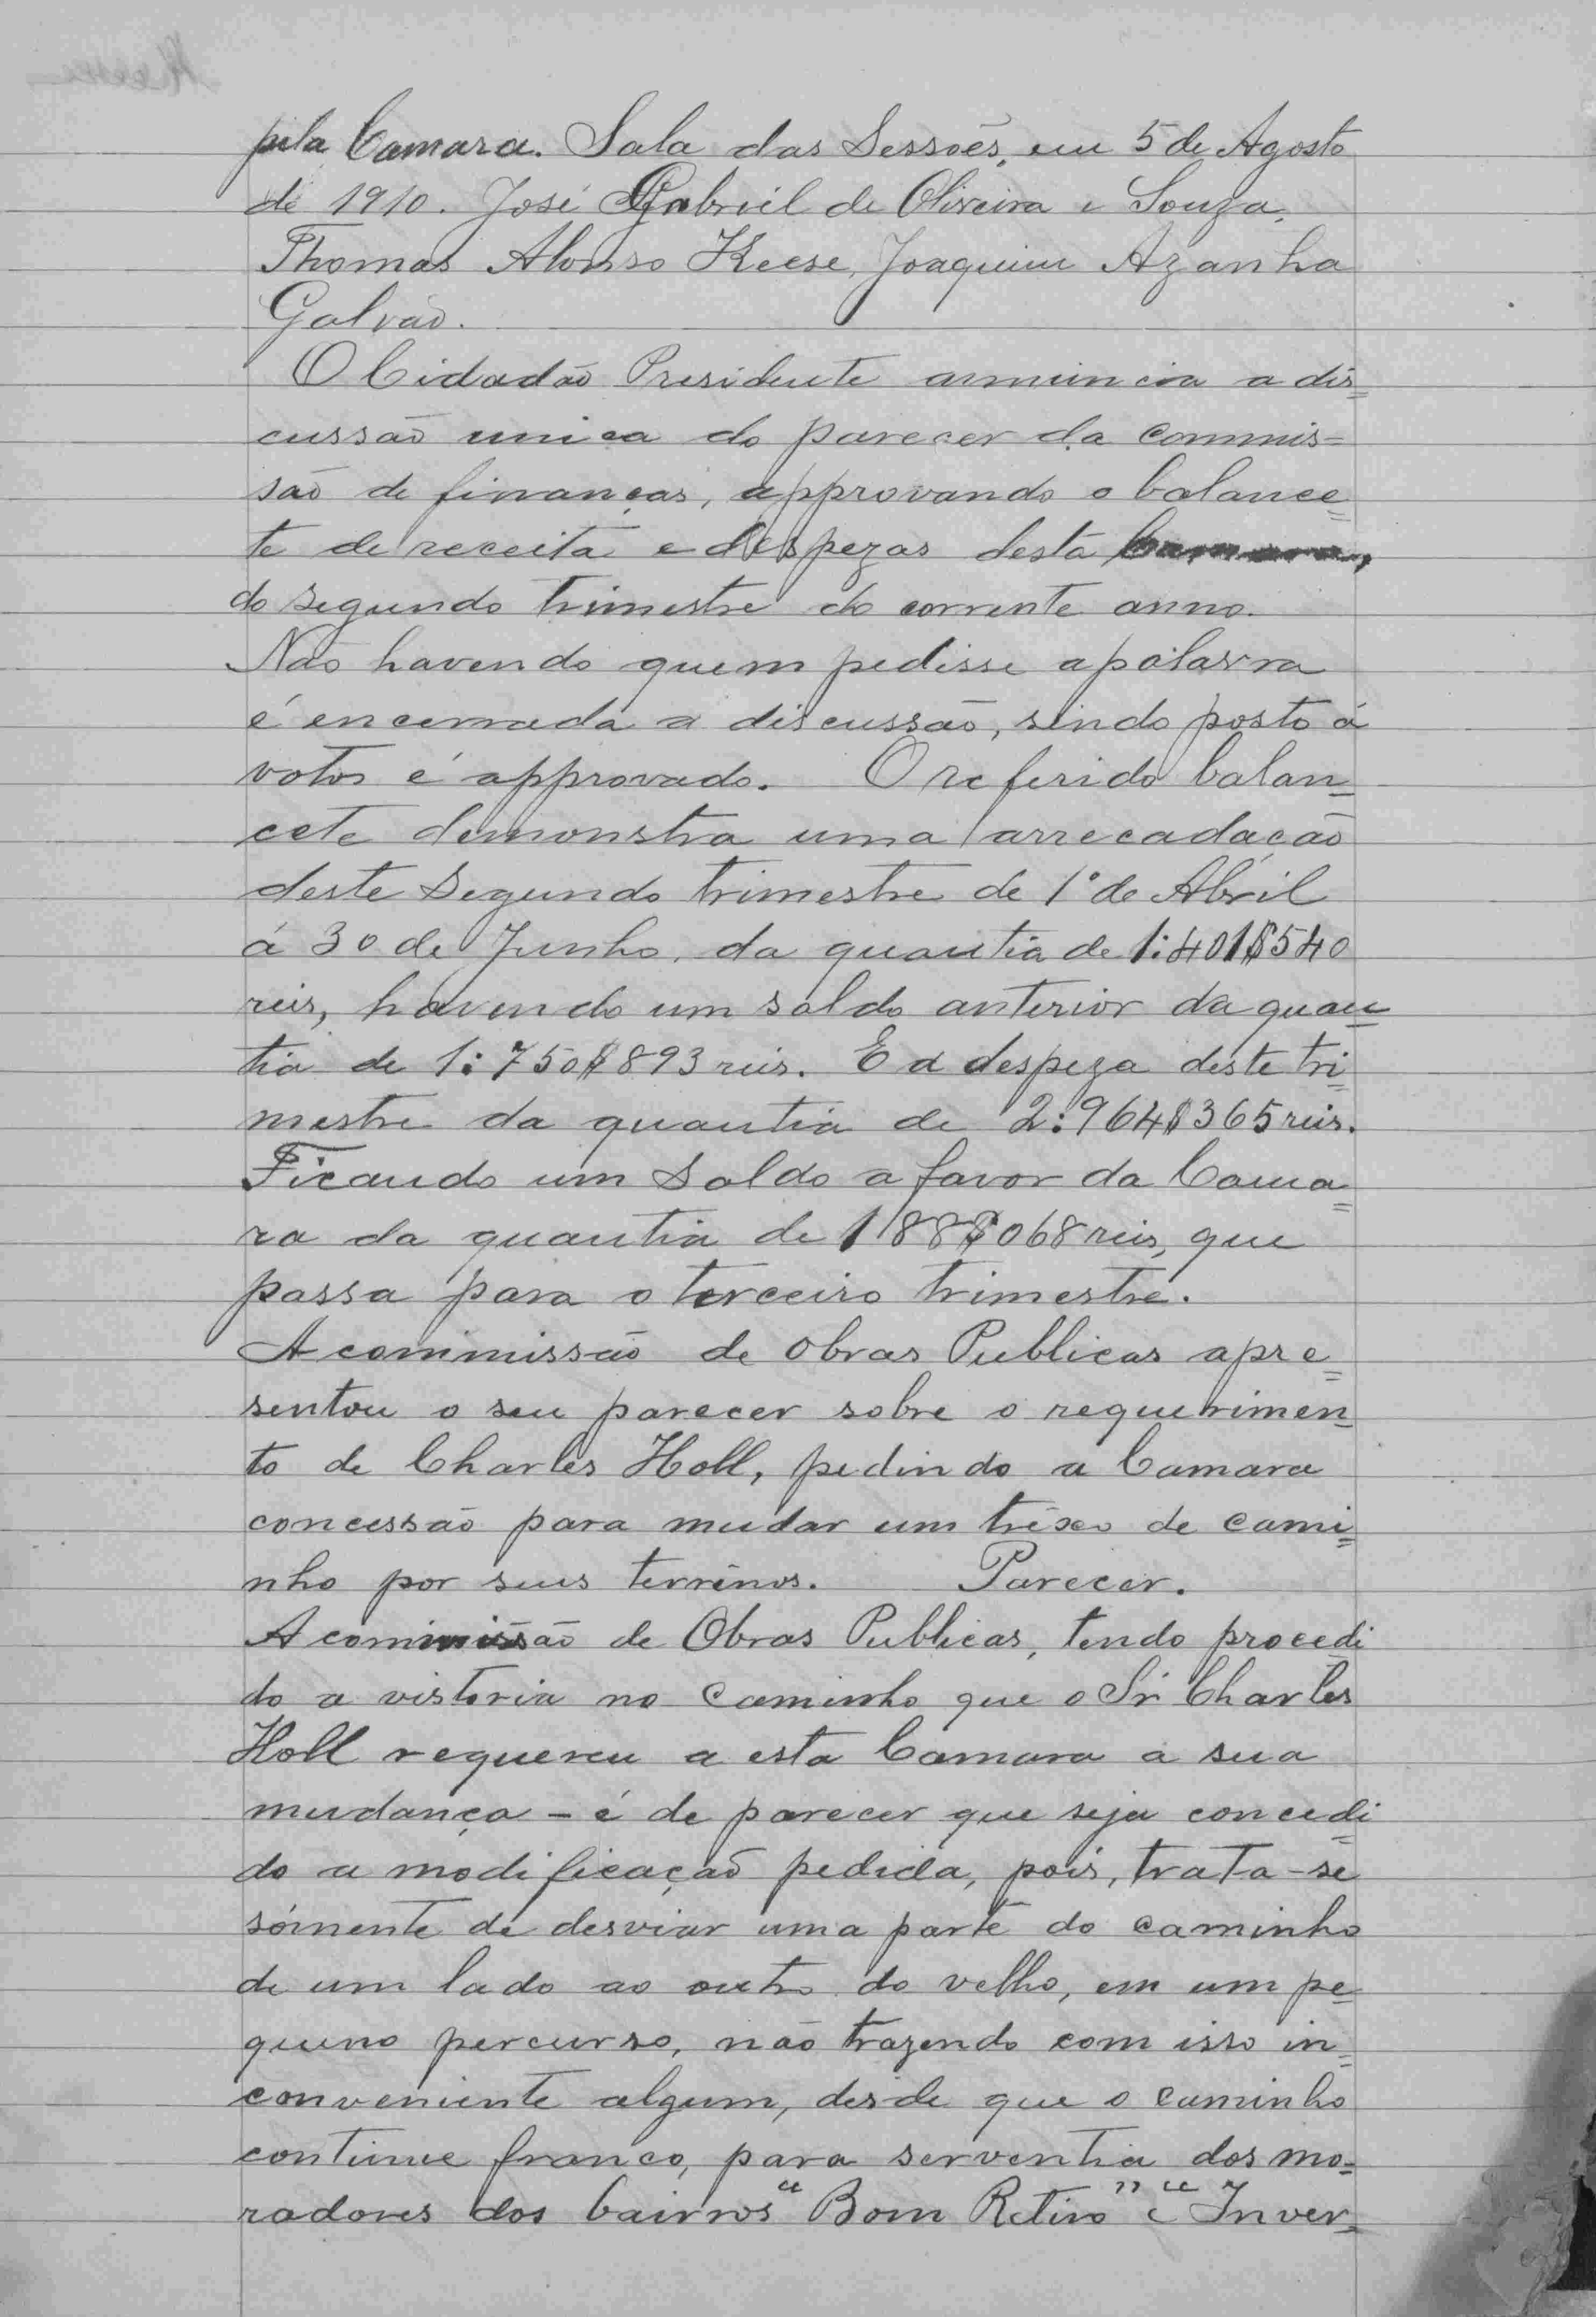 pela Camara. Sala das Sessões, em 5 de Agosto
de 1910. José Gabriel de Oliveira e Souza,
Thomas Alonso Keese, Joaquim Azanha
Galvão.
O Cidadão Presidente annuncia a dis=
cussão unica do parecer da commis=
são de finanças, approvando o balance=
te de receita e despezas desta Camara,
do segundo trimestre do corrente anno.
Não havendo quem pedisse a palavra
é encerrada a discussão, sendo posto á
votos é approvado. O referido balan=
cete demonstra uma arrecadação
deste segundo trimestre de 1º de Abril
á 30 de Junho, da quantia de 1:401$540
reis, havendo um saldo anterior da quan=
tia de 1:750$893 reis. E a despeza deste tri=
mestre da quantia de 2:964$365 reis.
Ficando um Saldo a favor da Cama=
ra da quantia de 188$068 reis, que
passa para o terceiro trimestre.
A commissão de Obras Publicas apre=
sentou o seu parecer sobre o requerimen=
to de Charles Holl, pedindo a Camara
concessão para mudar um trêxo de cami=
nho por seus terrenos. Parecer.
A commissão de Obras Publicas, tendo procedi
do a vistoria no caminho que o Sr Charles
Holl requereu a esta Camara a sua
mudança - é de parecer que seja concedi=
do a modificação pedida, pois, trata-se
sómente de desviar uma parte do caminho
de um lado ao outro do velho, em um pe=
queno percurso, não trazendo com isso in=
conveniente algum, desde que o caminho
continue franco, para serventia dos mo=
radores dos bairros "Bom Retiro" e "Inver=